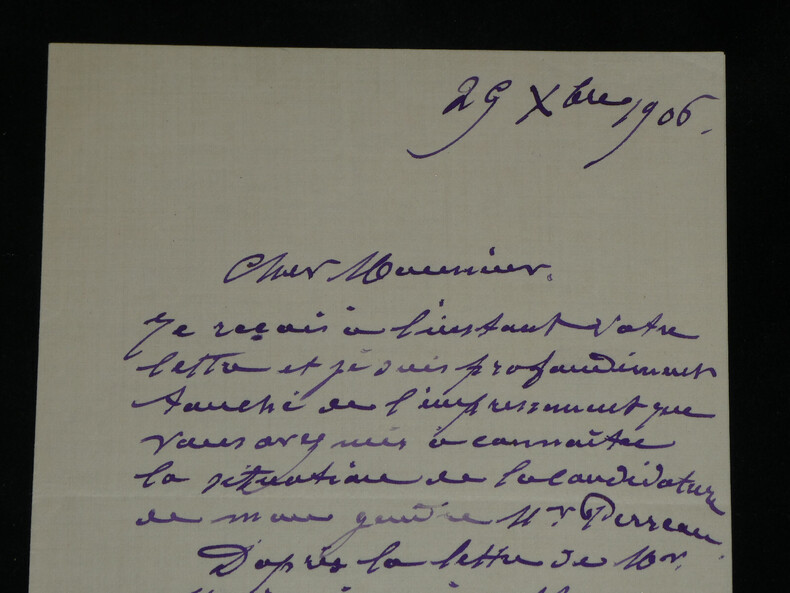 29 Xbre 1906.
Cher Monsieur.
Je reçois à l'instant votre
lettre et je suis profondément
touché de l'empressement que
vous avez mis à connaître
la situation de la candidature
de mon gendre Mr Perreau.
D'après la lettre de Mr.